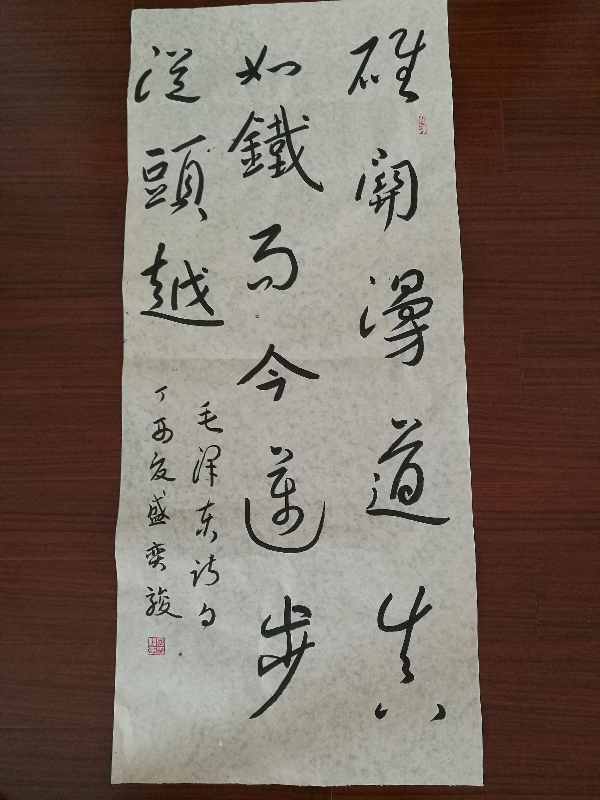 雄關漫道真
如鐵而今邁步
從頭越
毛泽东诗句
丁酉夏盛奕駿